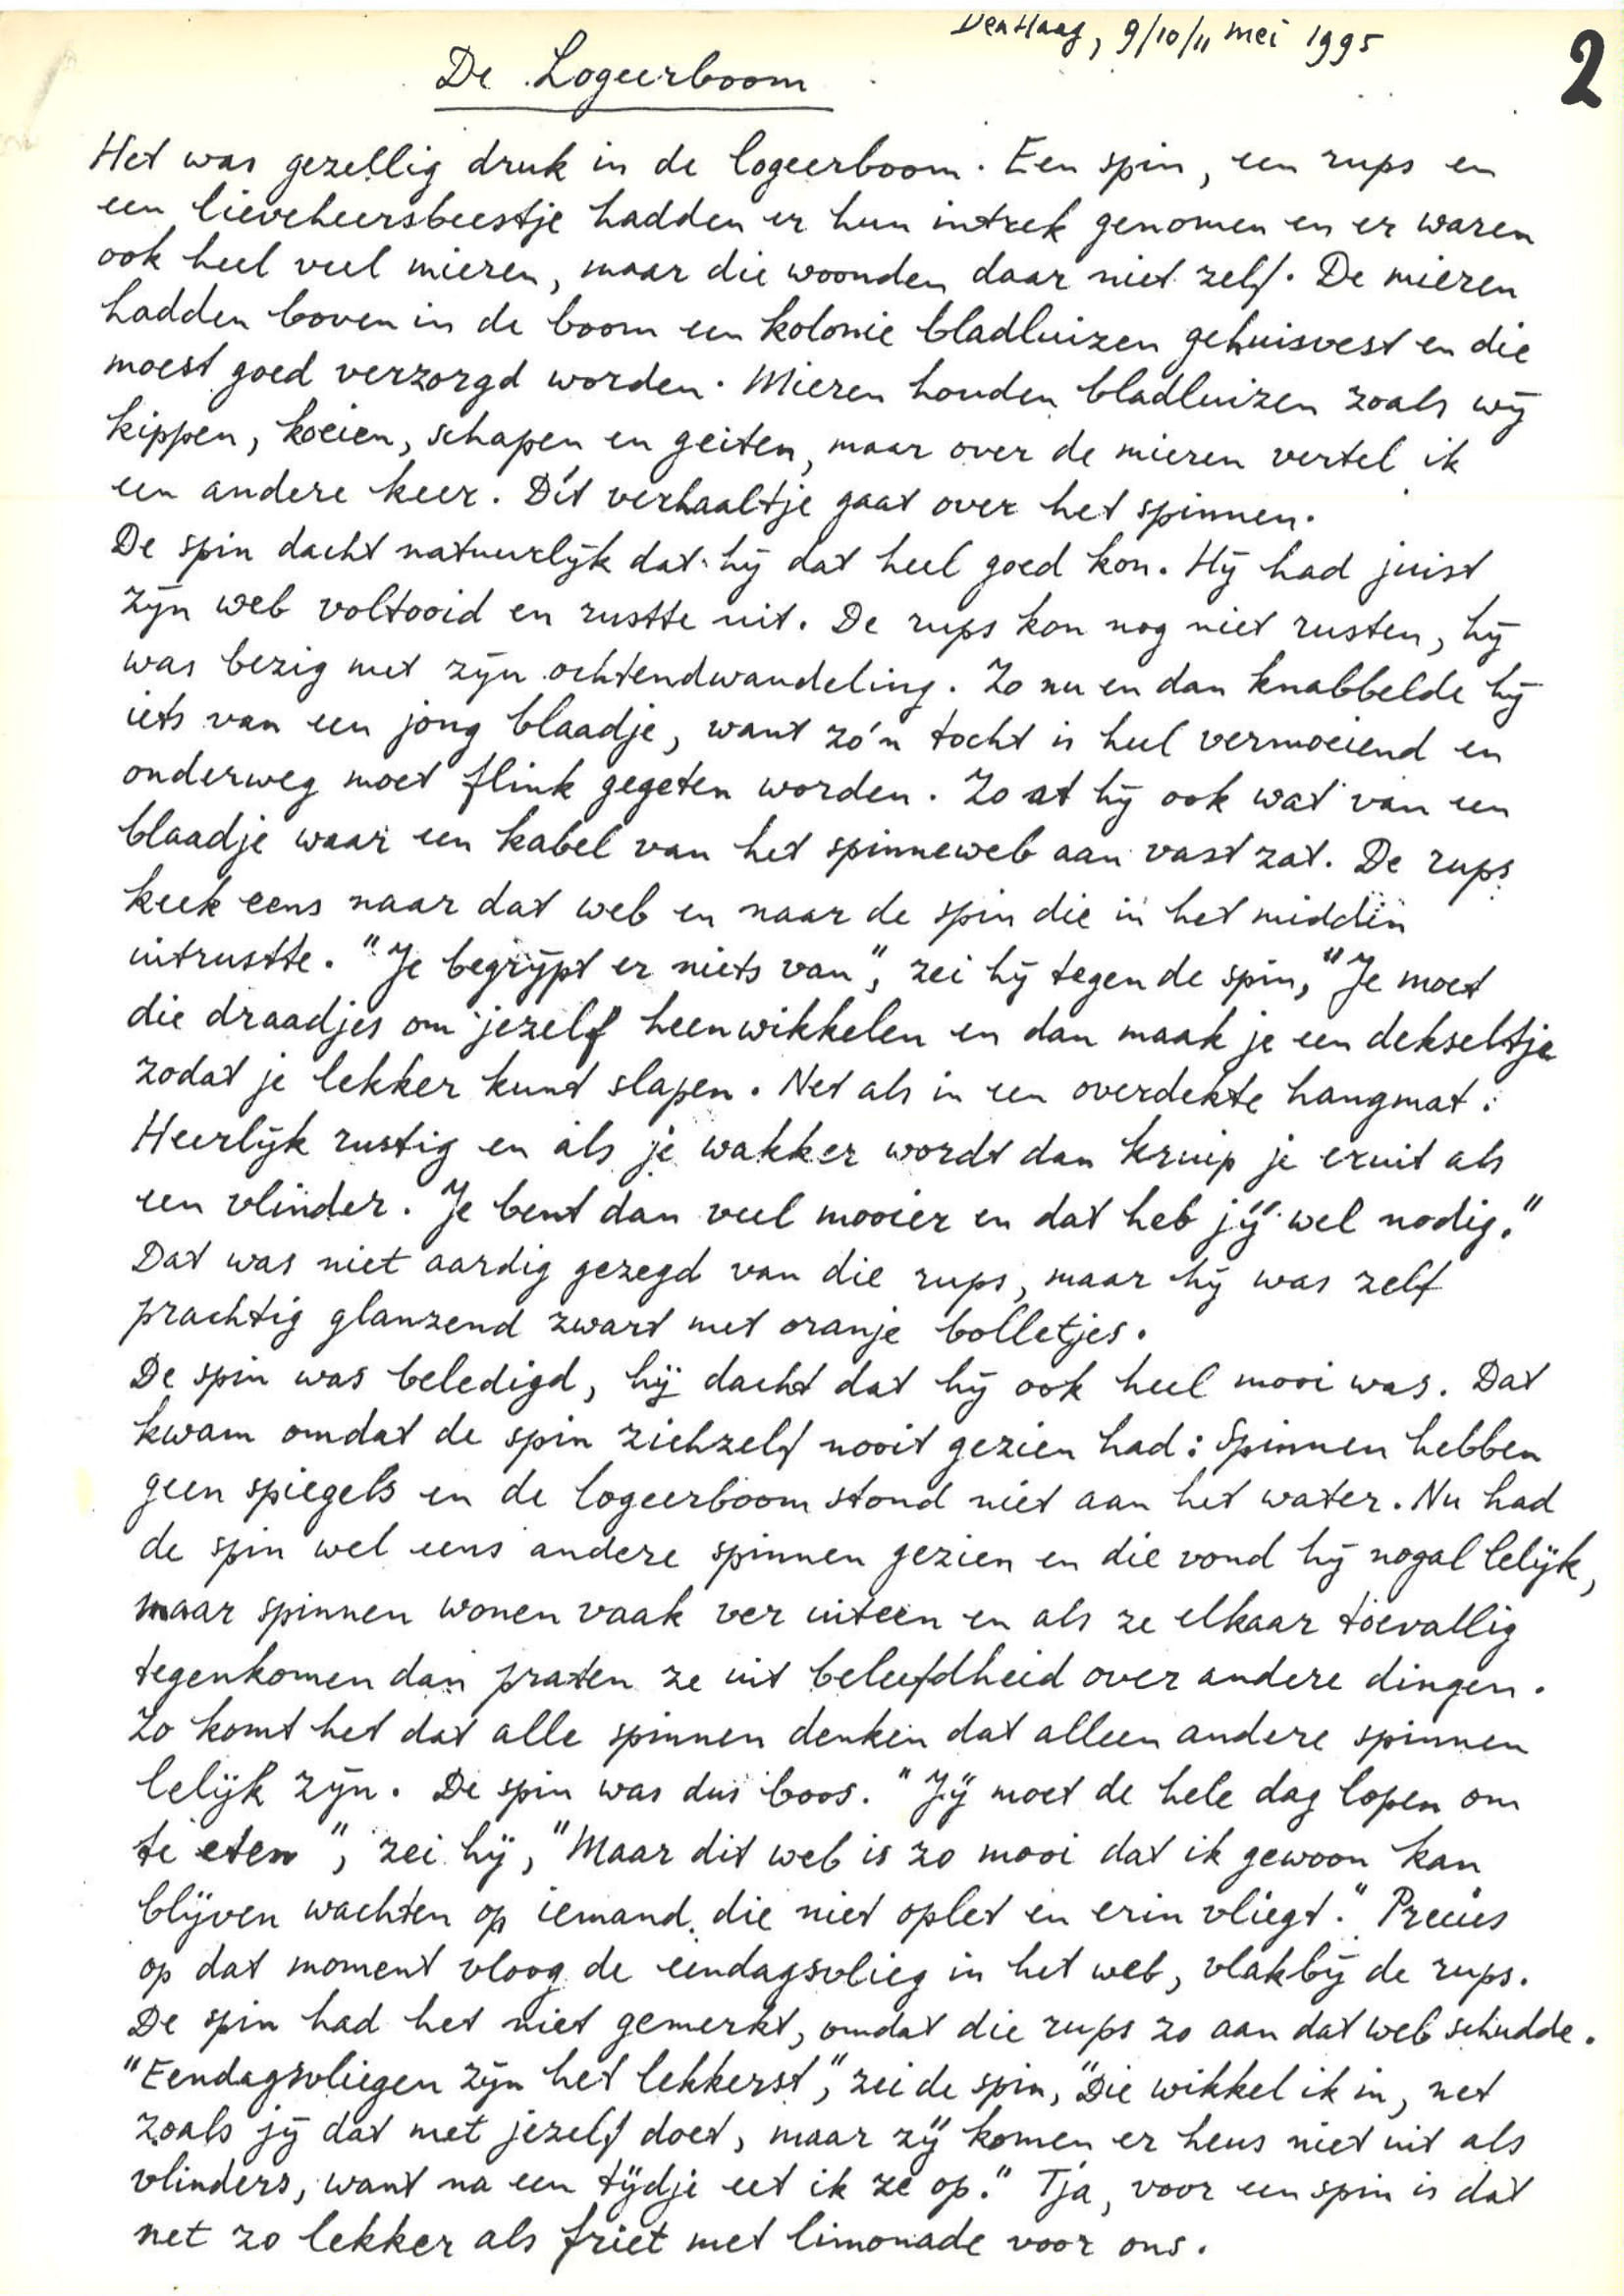 Den Haag, 9/10/11 mei 1995
2
De Logeerboom
Het was gezellig druk in de logeerboom. Een spin, een rups en
een lieveheersbeestje hadden er hun intrek genomen en er waren
ook heel veel mieren, maar die woonden daar niet zelf. De mieren
hadden boven in de boom een kolonie bladluizen gehuisvest en die
moest goed verzorgd worden. Mieren houden bladluizen zoals wij
kippen, koeien, schapen en geiten, maar over de mieren vertel ik
een andere keer. Dit verhaaltje gaat over het spinnen.
De spin dacht natuurlijk dat hij dat heel goed kon. Hij had juist
zijn web voltooid en rustte uit. De rups kon nog niet rusten, hij
was bezig met zijn ochtendwandeling. Zo nu en dan knabbelde hij
iets van een jong blaadje, want zó'n tocht is heel vermoeiend en
onderweg moet flink gegeten worden. Zo at hij ook wat van een
blaadje waar een kabel van het spinneweb aan vast zat. De rups
keek eens naar dat web en naar de spin die in het midden
uitrustte. "Je begrijpt er niets van", zei hij tegen de spin, "Je moet
die draadjes om jezelf heenwikkelen en dan maak je een dekseltje
zodat je lekker kunt slapen. Net als in een overdekte hangmat:
Heerlijk rustig en als je wakker wordt dan kruip je eruit als
een vlinder. Je bent dan veel mooier en dat heb jij wel nodig."
Dat was niet aardig gezegd van die rups, maar hij was zelf
prachtig glanzend zwart met oranje bolletjes.
De spin was beledigd, hij dacht dat hij ook heel mooi was. Dat
kwam omdat de spin zichzelf nooit gezien had: Spinnen hebben
geen spiegels en de logeerboom stond niet aan het water. Nu had
de spin wel eens andere spinnen gezien en die vond hij nogal lelijk,
maar spinnen wonen vaak ver uiteen en als ze elkaar toevallig
tegenkomen dan praten ze uit beleefdheid over andere dingen.
Zo komt het dat alle spinnen denken dat alleen andere spinnen
lelijk zijn. De spin was dus boos. "Jij moet de hele dag lopen om
te eten", zei hij, "Maar dit web is zo mooi dat ik gewoon kan
blijven wachten op iemand die niet oplet en erin vliegt." Precies
op dat moment vloog de eendagsvlieg in het web, vlakbij de rups.
De spin had het niet gemerkt, omdat die rups zo aan dat web schudde.
"Eendagsvliegen zijn het lekkerst", zei de spin, "Die wikkel ik in, net
zoals jij dat met jezelf doet, maar zij komen er heus niet uit als
vlinders, want na een tijdje eet ik ze op." Tja, voor een spin is dat
net zo lekker als friet met limonade voor ons.